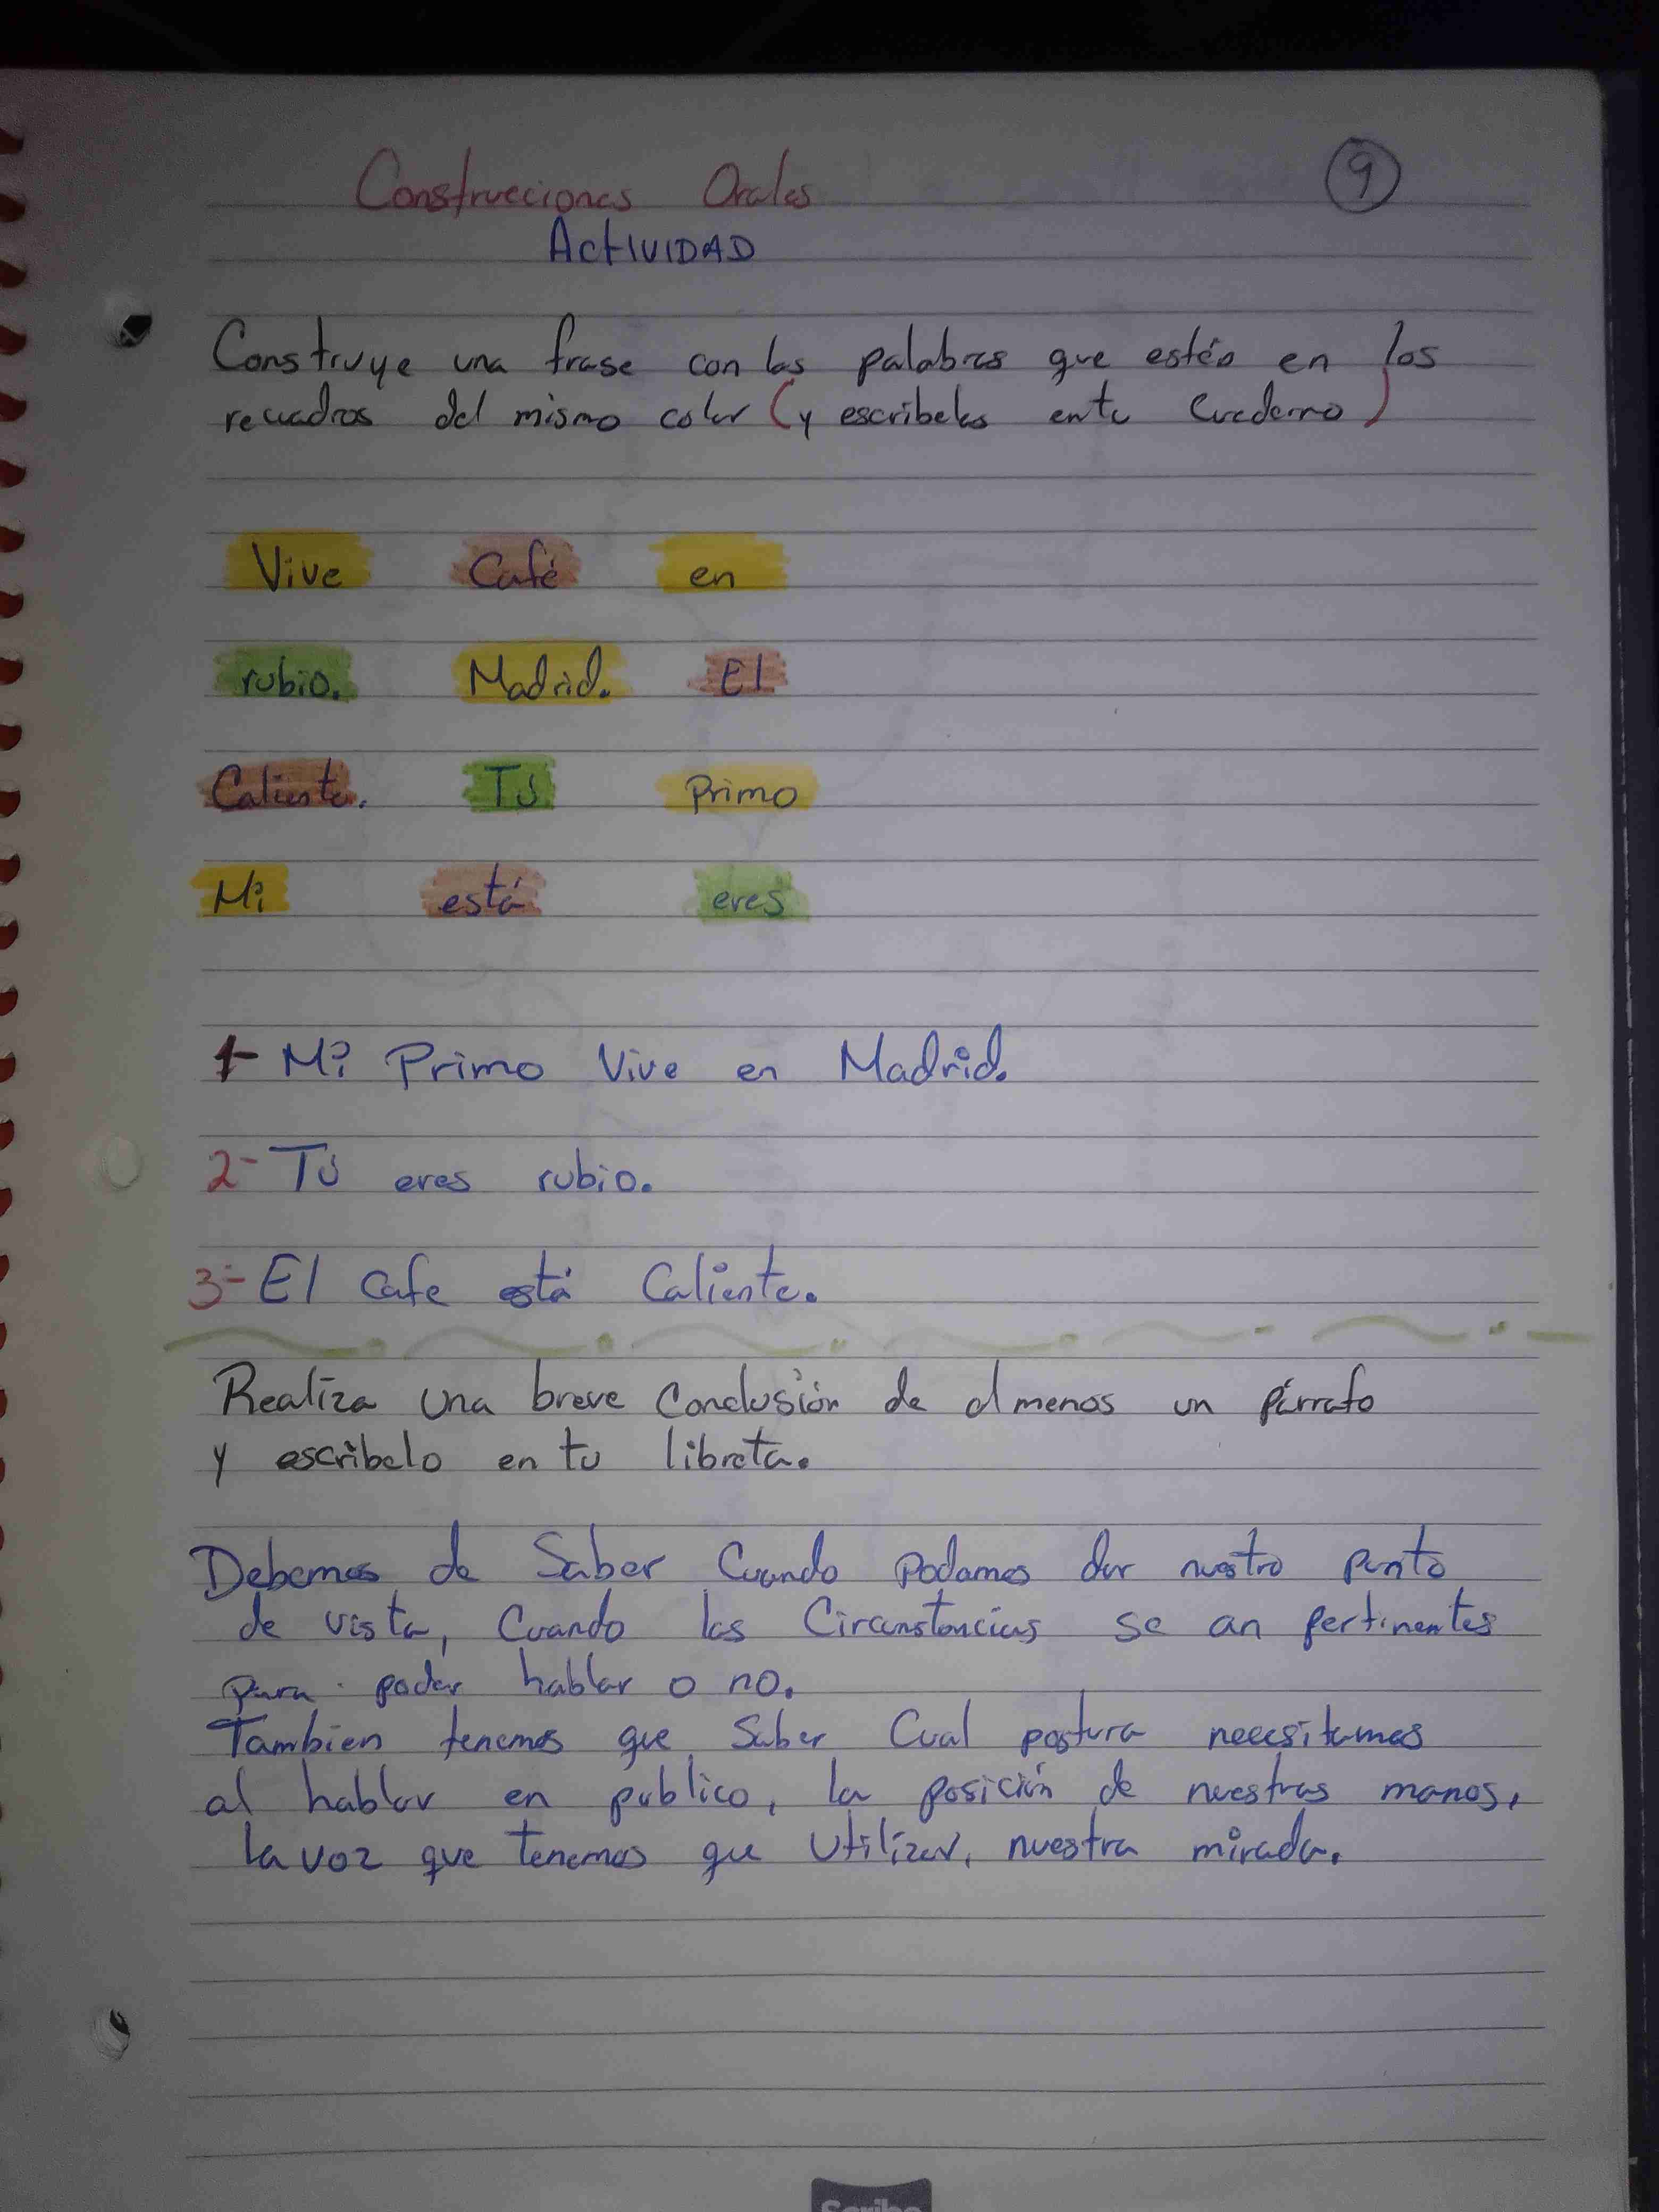 Construcciones Orales 9
ActIVIDAD
Construye una frase con las palabras que estén en los
recuadros del mismo color (y escribelas en tu Cuaderno)
Vive Café en
rubio. Madrid. El
Caliente. Tú Primo
Mi está eres
1- Mi Primo Vive en Madrid.
2- Tú eres rubio.
3- El Cafe está Caliente.
Realiza una breve Conclusión de al menos un párrafo
y escribelo en tu libreta.
Debemos de Saber Cuando podamos dar nuestro punto
de vista, Cuando las Circunstancias se an pertinentes
para poder hablar o no.
Tambien tenemos que Saber Cual postura necesitamos
al hablar en publico, la posición de nuestras manos,
la voz que tenemos que utilizar, nuestra mirada.
Scribe